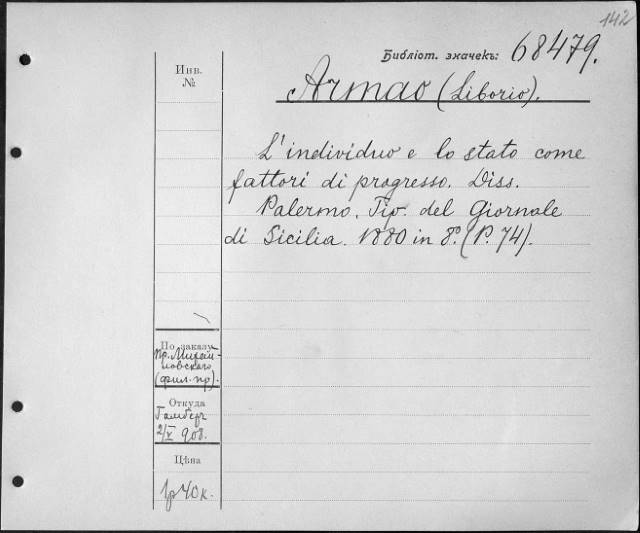 142
Библіот. значекъ: 68479.
Инв.
№
Armao (Liborio).
L'individuo e lo stato come
fattori di progresso. Diss.
Palermo. Tip. del Giornale
di Sicilia. 1880 in 8º. (P. 74).
По заказу
пр. Михай-
ловскаго
(фил. пр).
Откуда
Гамберг
2/X 908.
Цѣна
1р 40 к.